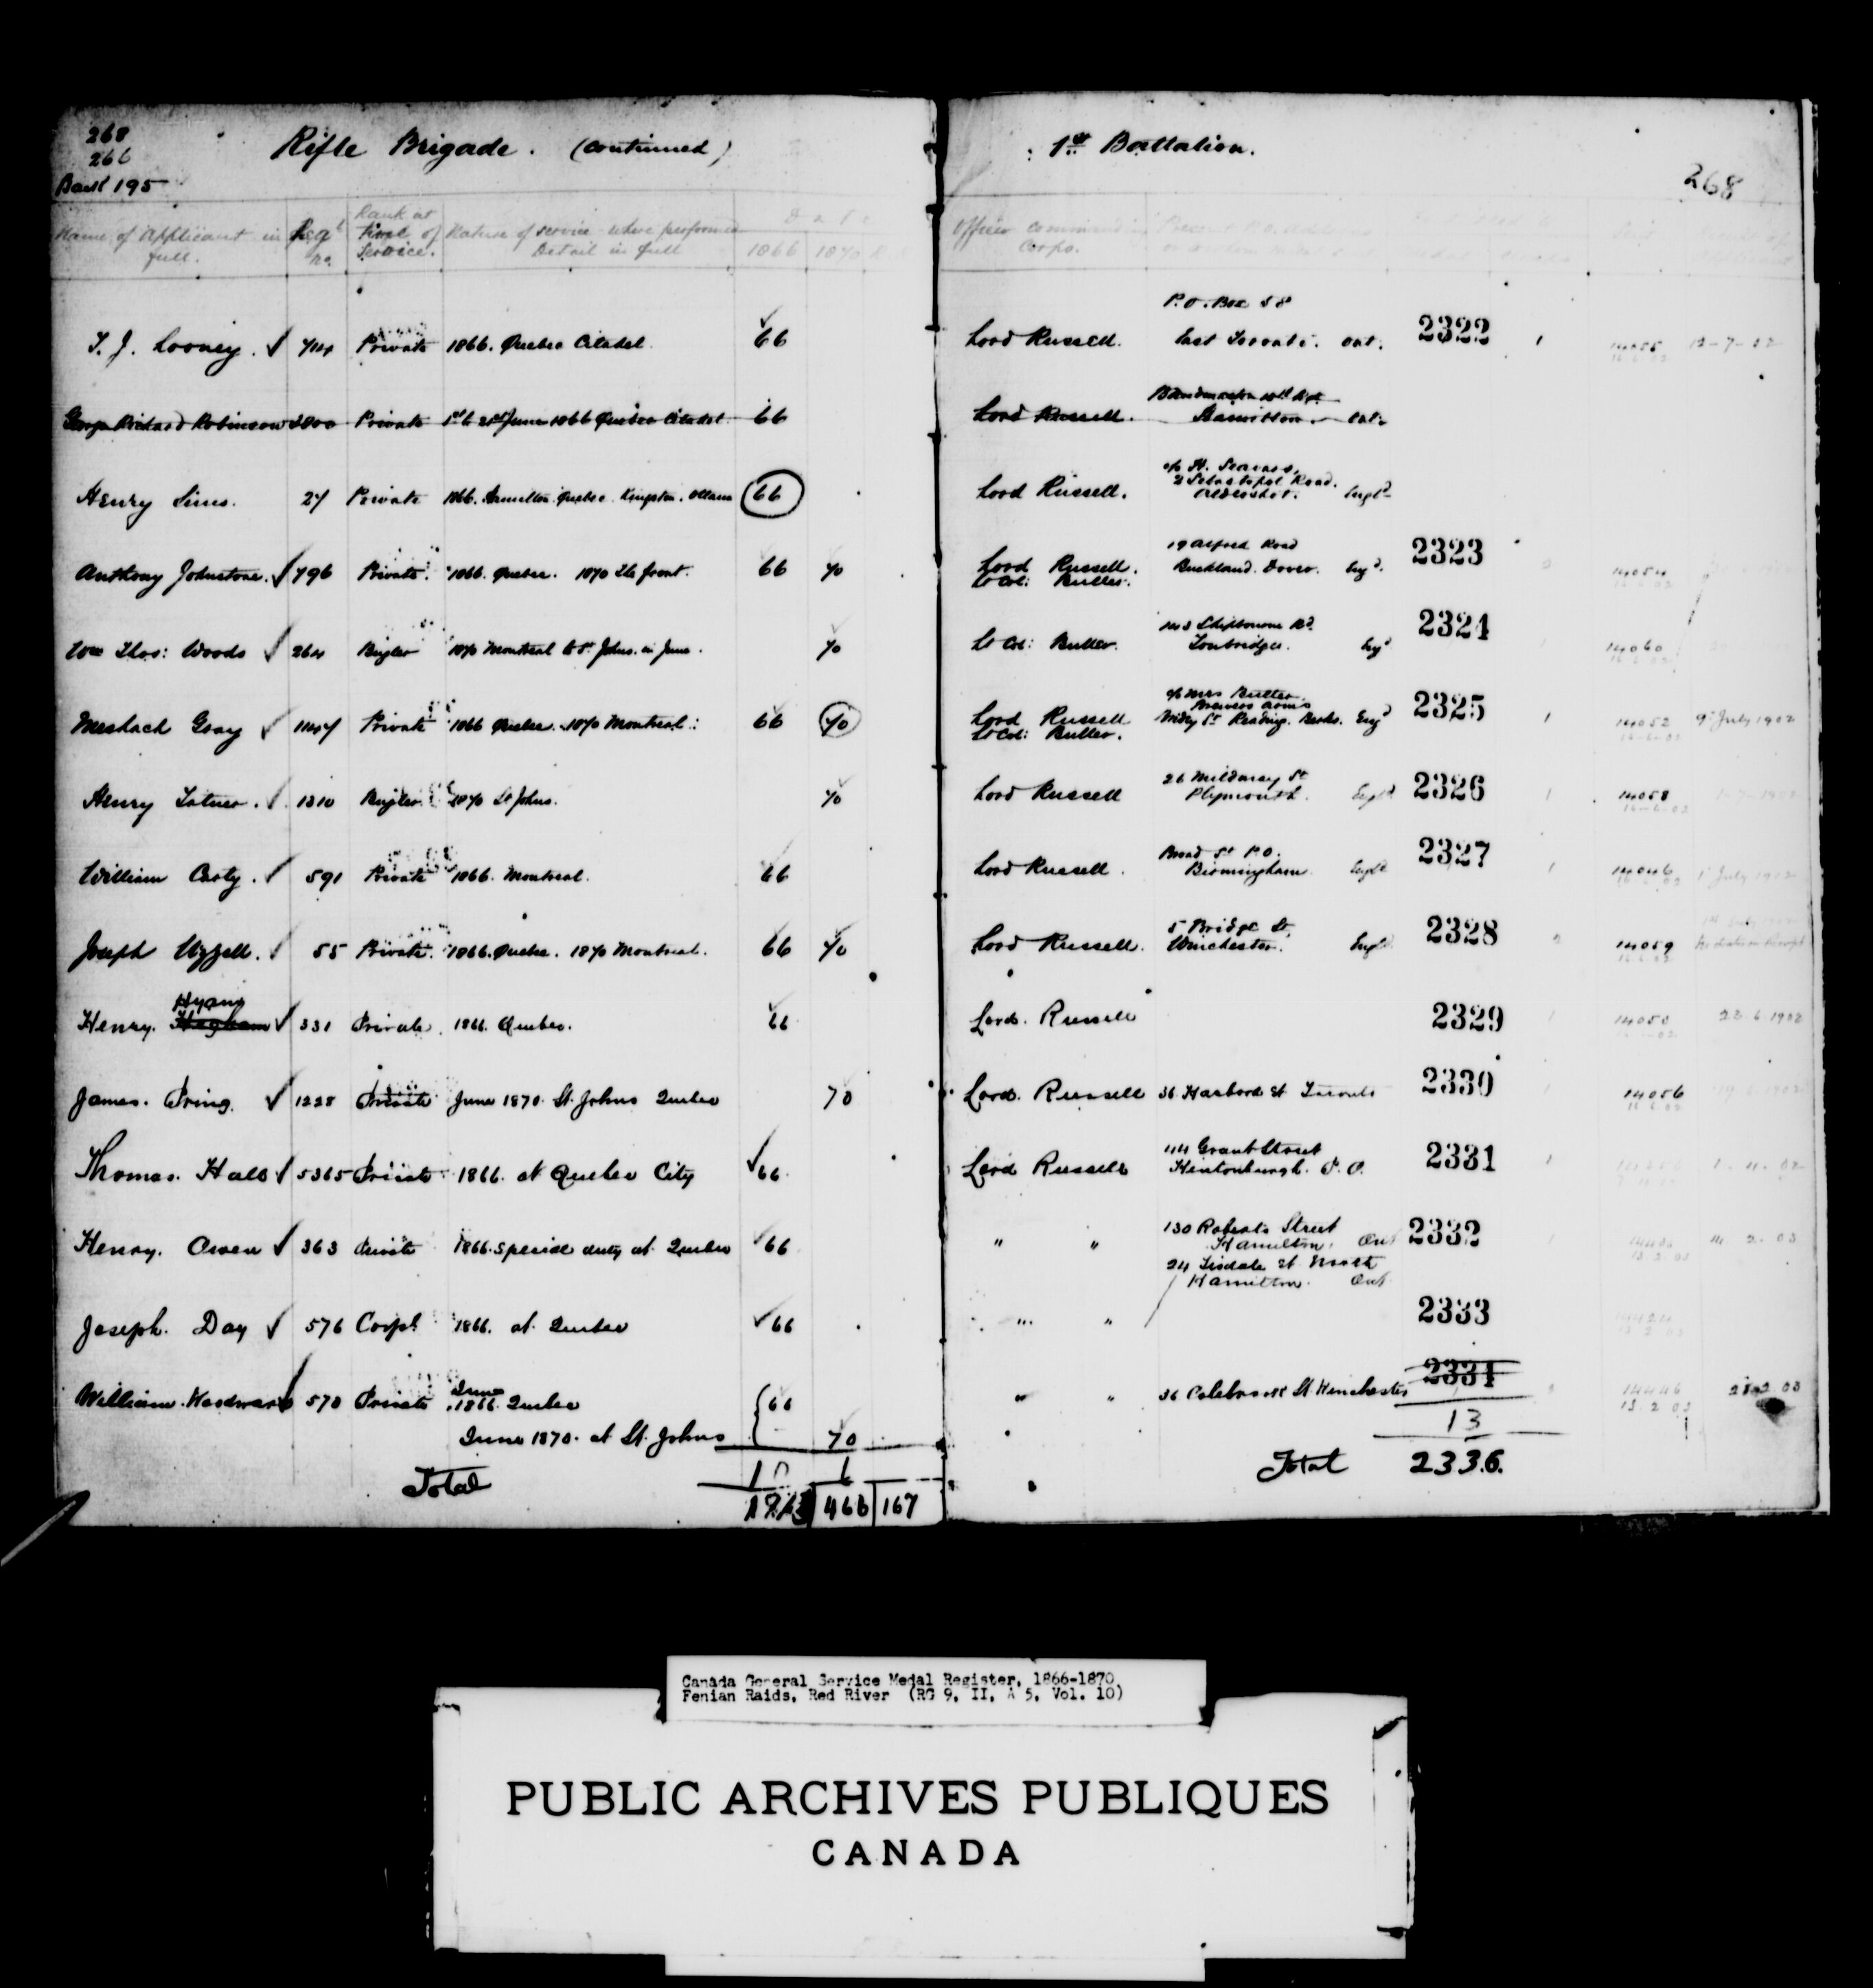 268
266
195
Rifle Brigade. (continued)
1st Battalion.
268
Name of Applicant in full. Regt no. Rank at time of Service. Nature of service where performed Detail in full Date 1866 1870
Officer commanding Corps.
T. J. Looney. 714 Private 1866. Quebec Citadel. 66 Lord Russell. P.O. Box 58 East Toronto. Ont. 2322 1 12-7-02
George Richard Robinson Private 1st to 21st June 1866 Quebec Citadel 66 Lord Russell. Hamilton. Ont.
Henry Sims. 27 Private 1866. Hamilton. Quebec. Kingston. Ottawa 66 Lord Russell. c/o H. 2 Sebastopol Road. Aldershot. Engd
Anthony Johnstone. 796 Private. 1866. Quebec. 1870 to front. 66 70 Lord Russell. Lt Col: Butler. 19 Alfred Road Buckland. Dover. Engd. 2323 14054
Wm Thos: Woods 264 Bugler 1870 Montreal to St. Johns. in June. 70 Lt Col: Butler. Shipbourne Rd. Tonbridge. Engd 2324 14060
Meshach Gray 1147 Private 1866 Quebec. 1870 Montreal: 66 70 Lord Russell Lt Col: Butler. c/o Mrs Butler Brewers Arms St Reading. Berks. Engd 2325 1 14052 9 July 1902
Henry 1310 Bugler 1870 St Johns. 70 Lord Russell 26 Mildmay St Plymouth. Engd 2326 1 14058
William Carty. 591 Private 1866. Montreal. 66 Lord Russell. Broad St P.O. Birmingham Engd 2327 1 14046 1 July 1902
Joseph Uzzell. 55 Private. 1866. Quebec. 1870 Montreal. 66 70 Lord Russell. 5 Bridge St, Winchester. Engd. 2328 14059
Hyam
Henry. 331 Private. 1866. Quebec. 66 Lord. Russell 2329 23.6.1902
James. Pring. 1228 Private June 1870. St. Johns Quebec 70 Lord. Russell 36 Harbord St Toronto 2330 14056
Thomas. Hall 5365 Private 1866. at Quebec City 66. Lord Russell Grant Street Hintonburgh. P.O. 2331
Henry. Owen 363 Private 1866. special duty at Quebec 66 " " 130 Roberts Street Hamilton. Ont 2332
24 Tisdale St North Hamilton. Ont
Joseph. Day 576 Corpl 1866. at Quebec 66 " " 2333
William. Woodward 570 Private June 1866. Quebec 66 " " 36 St. Winchester 2334
June 1870. at St. Johns 70 13
10 6
Total 466 167 Total 2336.
Canada General Service Medal Register, 1866-1870
Fenian Raids, Red River (RG 9, II, A 5, Vol. 10)
PUBLIC ARCHIVES PUBLIQUES
CANADA